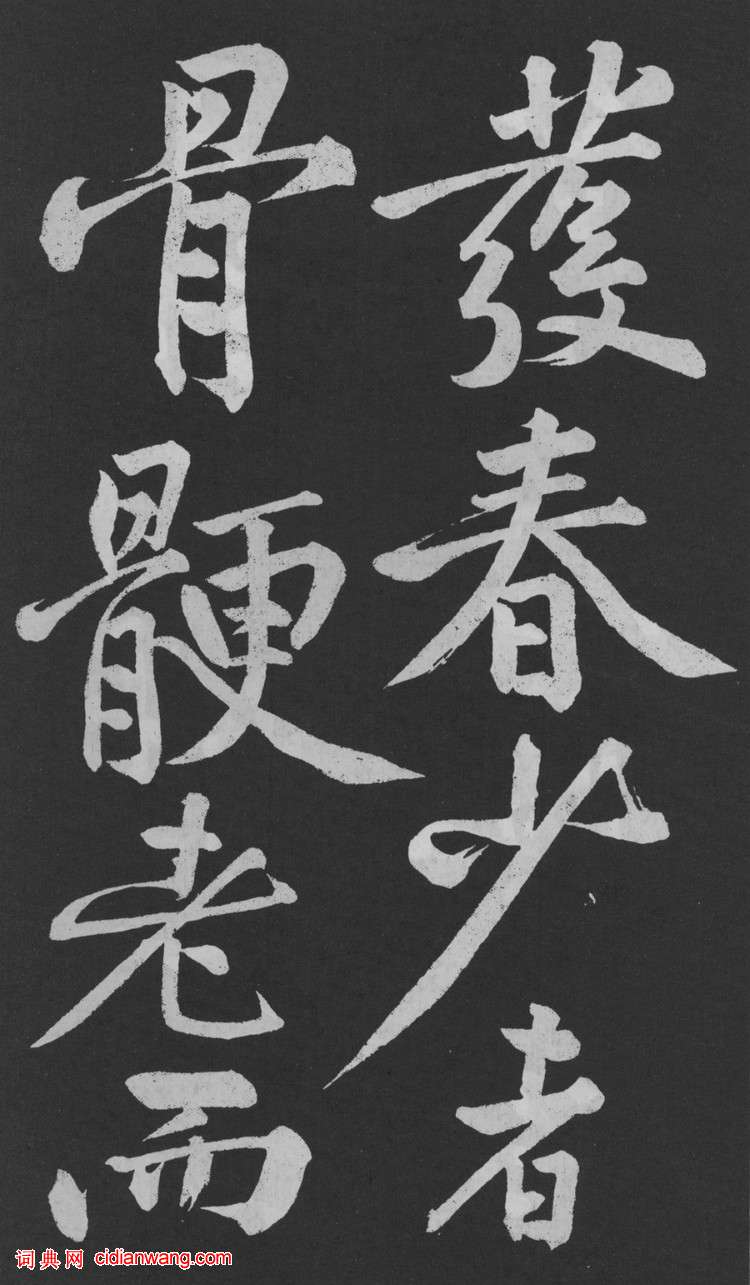 發春少者
骨骾老而
词典网 cidianwang.com